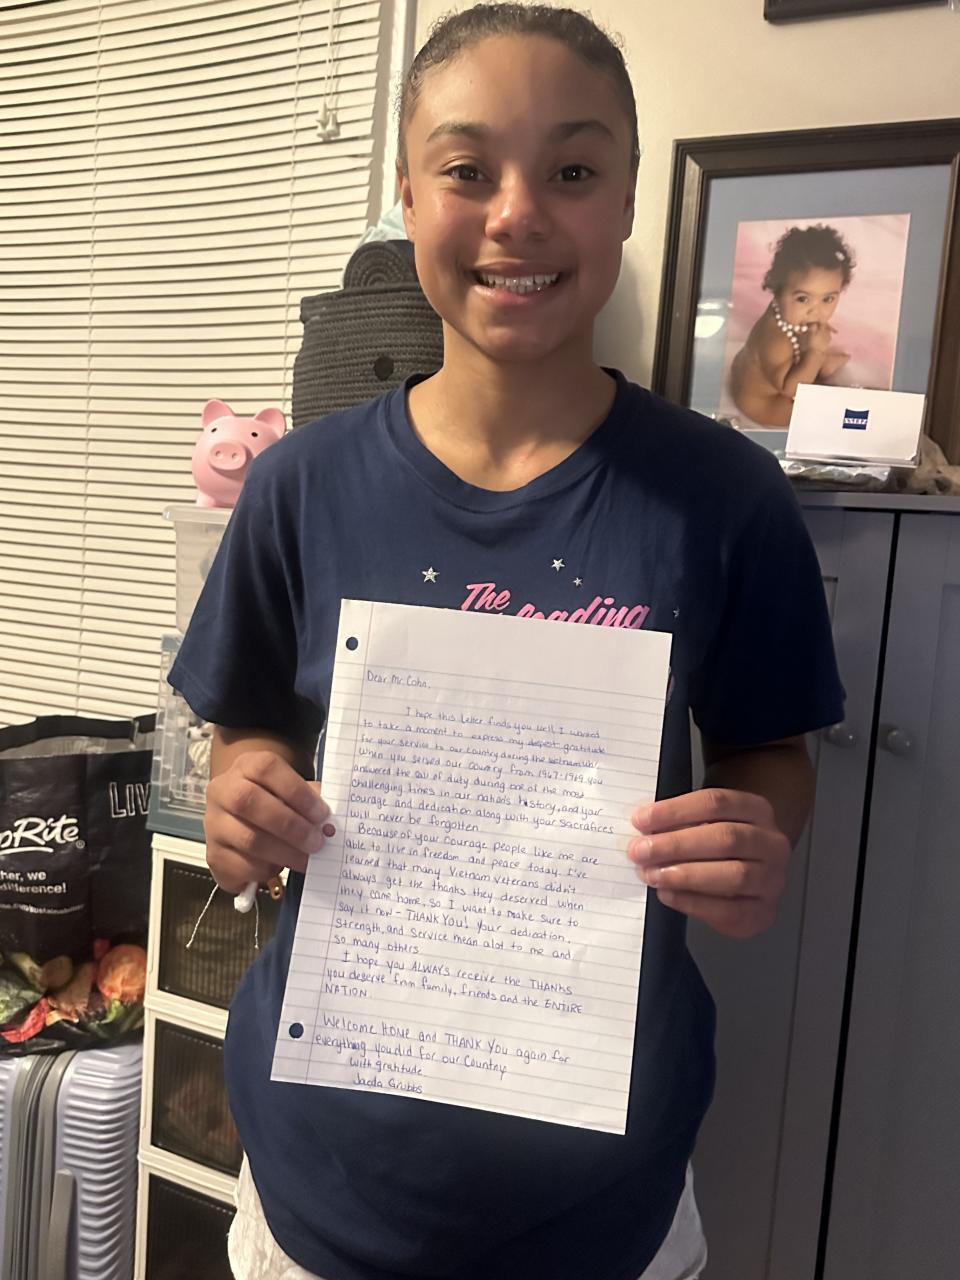 The
loading
Dear Mr. Cohn,
I hope this letter finds you well. I wanted
to take a moment to express my deepest gratitude
for your service to our country during the Vietnam War.
When you served our country from 1967-1969 you
answered the call of duty during one of the most
challenging times in our nation's history, and your
courage and dedication along with your sacrifices
will never be forgotten.
Because of your courage people like me are
able to live in freedom and peace today. I've
learned that many Vietnam veterans didn't
always get the thanks they deserved when
they came home, so I want to make sure to
say it now - THANK YOU! Your dedication,
strength, and service mean alot to me and
so many others.
I hope you ALWAYS receive the THANKS
you deserve from family, friends and the ENTIRE
NATION.
Welcome HOME and THANK YOU again for
everything you did for our country
with gratitude
Jaeda Grubbs
LIV
pRite
her, we
difference!